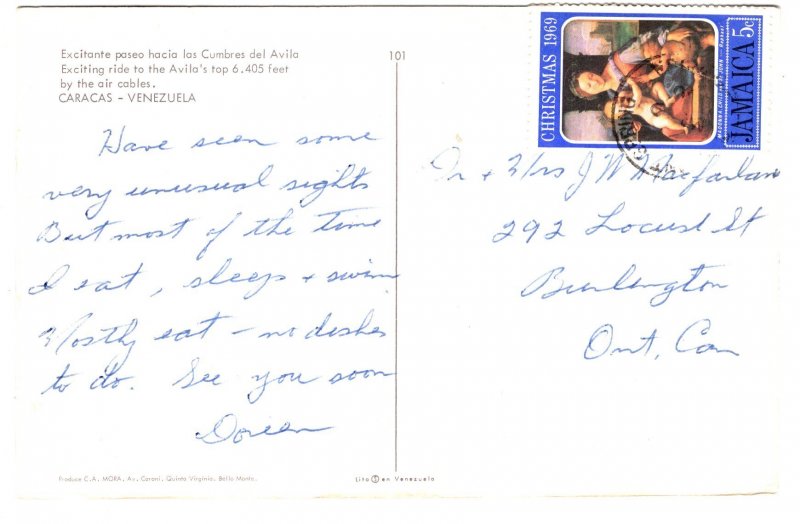 Excitante paseo hacia las Cumbres del Avila
Exciting ride to the Avila's top 6.405 feet
by the air cables.
CARACAS - VENEZUELA
101
Have seen some
very unusual sights
But most of the time
I eat, sleep + swim
Mostly eat - no dishes
to do. See you soon
Doreen
Produce C.A. MORA, Av. Caroni, Quinta Virginia, Bello Monte.
Lito S en Venezuela
CHRISTMAS 1969
MADONNA CHILD and St JOHN Raphael
JAMAICA 5c
SPRING
+ Mrs J W Macfarlane
292 Locust St
Burlington
Ont, Can